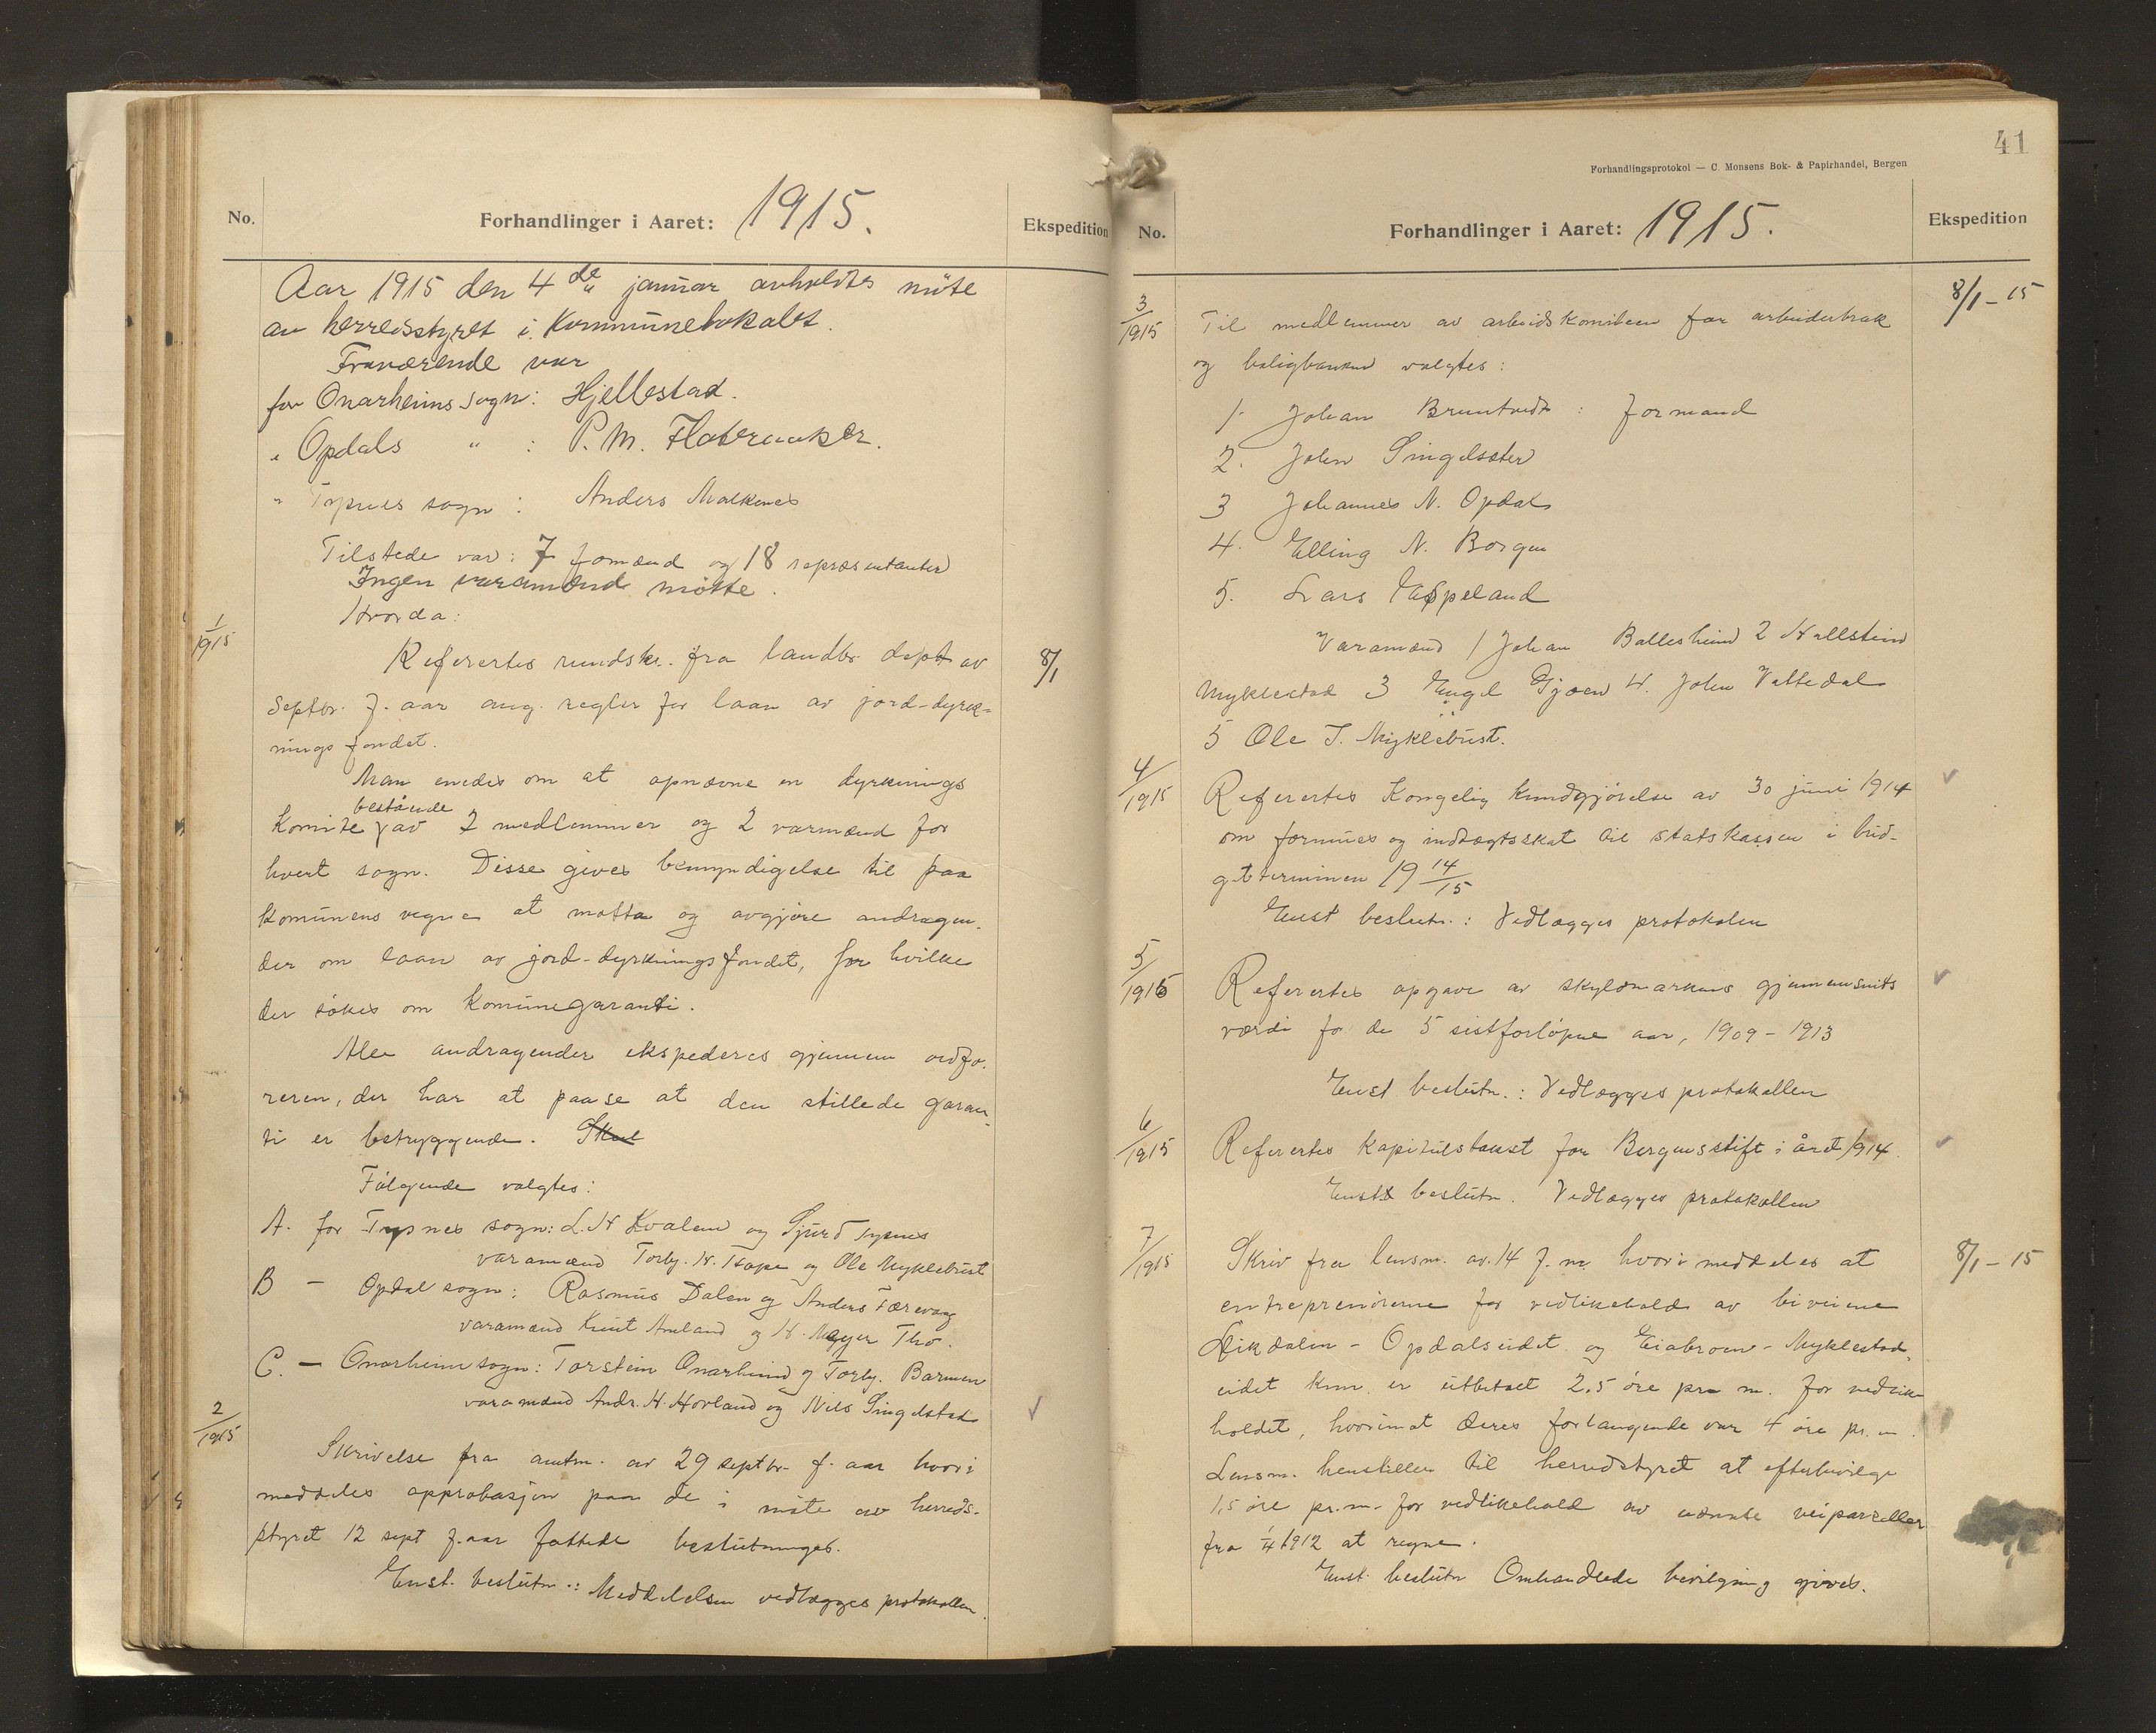 No.
Forhandlinger i Aaret: 1915.
Ekspedition
Aar 1915 den 4de januar avholdtes møte
av herredsstyret i Kommunelokalet.
Fraværende var
for Onarheims sogn: Hjellestad.
" Opdals " : P. M. Flateraaker.
" Tysnes sogn : Anders Malkenes
Tilstede var: 7 formænd og 18 repræsentanter
Ingen varamænd møtte.
Hvorda:
1/1915
Referertes rundskr. fra landbr. dept av
8/1
Septbr. f. aar ang. regler for laan av jord-dyrk-
nings fondet.
Man enedes om at opnævne en dyrknings
bestående
Komite av 2 medlemmer og 2 varmænd for
hvert sogn. Disse gives bemyndigelse til paa
Komunens vegne at motta og avgjøre andragen-
der om laan av jord-dyrknings fondet, for hvilke
der søkes om Komunegaranti.
Alle andragender ekspederes gjennem ordfø-
reren, der har at paase at den stillede garan-
ti er betryggende. Skul
Følgende valgtes:
A. for Tysnes sogn: L. H Kvalem og Sjurd Tysnes
varamænd Torbj. N. Hope og Ole Myklebust
B – Opdal sogn: Rasmus Dalen og Anders Færevaag
varamænd Knut Aneland og H. Meyer Tho.
C. – Onarheim sogn: Torstein Onarheim og Torbj. Barmen
varamænd Andr. H. Hovland og Nils Singelstad
2/1915
Skrivelse fra amtm. av 29 septbr. f. aar hvori
meddeles approbasjon paa de i møte av herreds-
styret 12 sept f. aar fattede beslutninger.
Enst. beslutn.: Meddelelsen vedlægges protokollen.
41
Forhandlingsprotokol — C. Monsens Bok- & Papirhandel, Bergen
No.
Forhandlinger i Aaret: 1915.
Ekspedition
3/1915
8/1 – 15
Til medlemmer av arbeidskomiteen for arbeiderbruk
og boligbanken valgtes:
1. Johan Bruntveit : formand
2. John Singelstad
3 Johannes N. Opdal
4. Elling N. Borgen
5. Lars Espeland
Varamænd 1 Johan Ballesheim 2 Hallstein
Myklestad 3 Engel Gjøen 4. John Vattedal
5 Ole J. Myklebust.
4/1915
Referertes Kongelig kundgjørelse av 30 juni 1914
om formues og indtægtsskat til statskassen i bud-
getterminen 19 14/15
Enst beslutn.: Vedlægges protokolen
5/1915
Referertes opgave av skyldmarkens gjennemsnits
værdi for de 5 sistforløpne aar, 1909 – 1913
Enst beslutn.: Vedlægges protokollen
6/1915
Referertes Kapitulstakst for Bergensstift i året 1914.
Enst beslutn. Vedlægges protokollen
7/1915
8/1 – 15
Skriv fra lensm. av 14 f. m. hvori meddeles at
entreprenørerne for vedlikehold av biveiene
Leikdalen – Opdalseidet og Eiabroen – Myklestad-
eidet kun er utbetalt 2,5 øre pr. m. for vedlike
holdet, hvorimot deres forlangende var 4 øre pr. m.
Lensm. henstiller til herredstyret at efterbevilge
1,5 øre pr. m. for vedlikehold av nævnte veiparseller
fra 1/4 1912 at regne.
Enst. beslutn Omhandlede bevilgning gives.